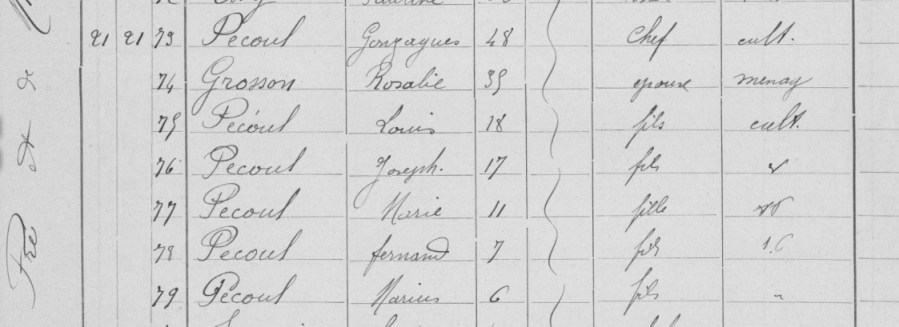 21 21 73 Pecoul Gonzagues 48 Chef cult.
74 Grosson Rosalie 39 epouse menag
75 Pécoul Louis 18 fils cult.
76 Pecoul Joseph. 17 fils
77 Pecoul Marie 11 fille
78 Pecoul fernand 7 fils
79 Pecoul Marius 6 fils "